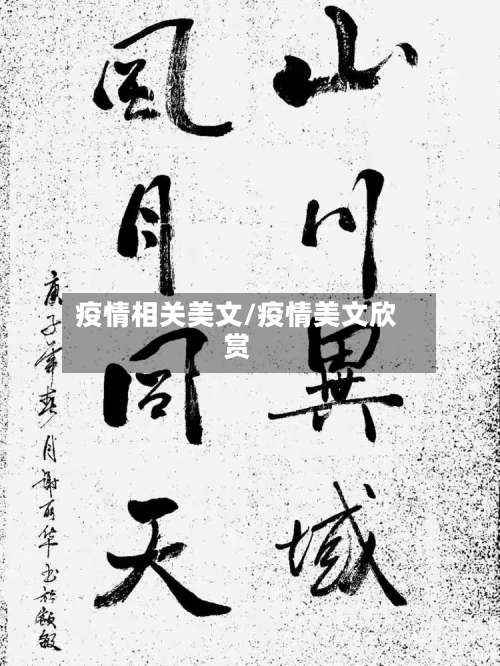 山川異域
風月同天
庚子年春月謝丽华书於
疫情相关美文/疫情美文欣
赏